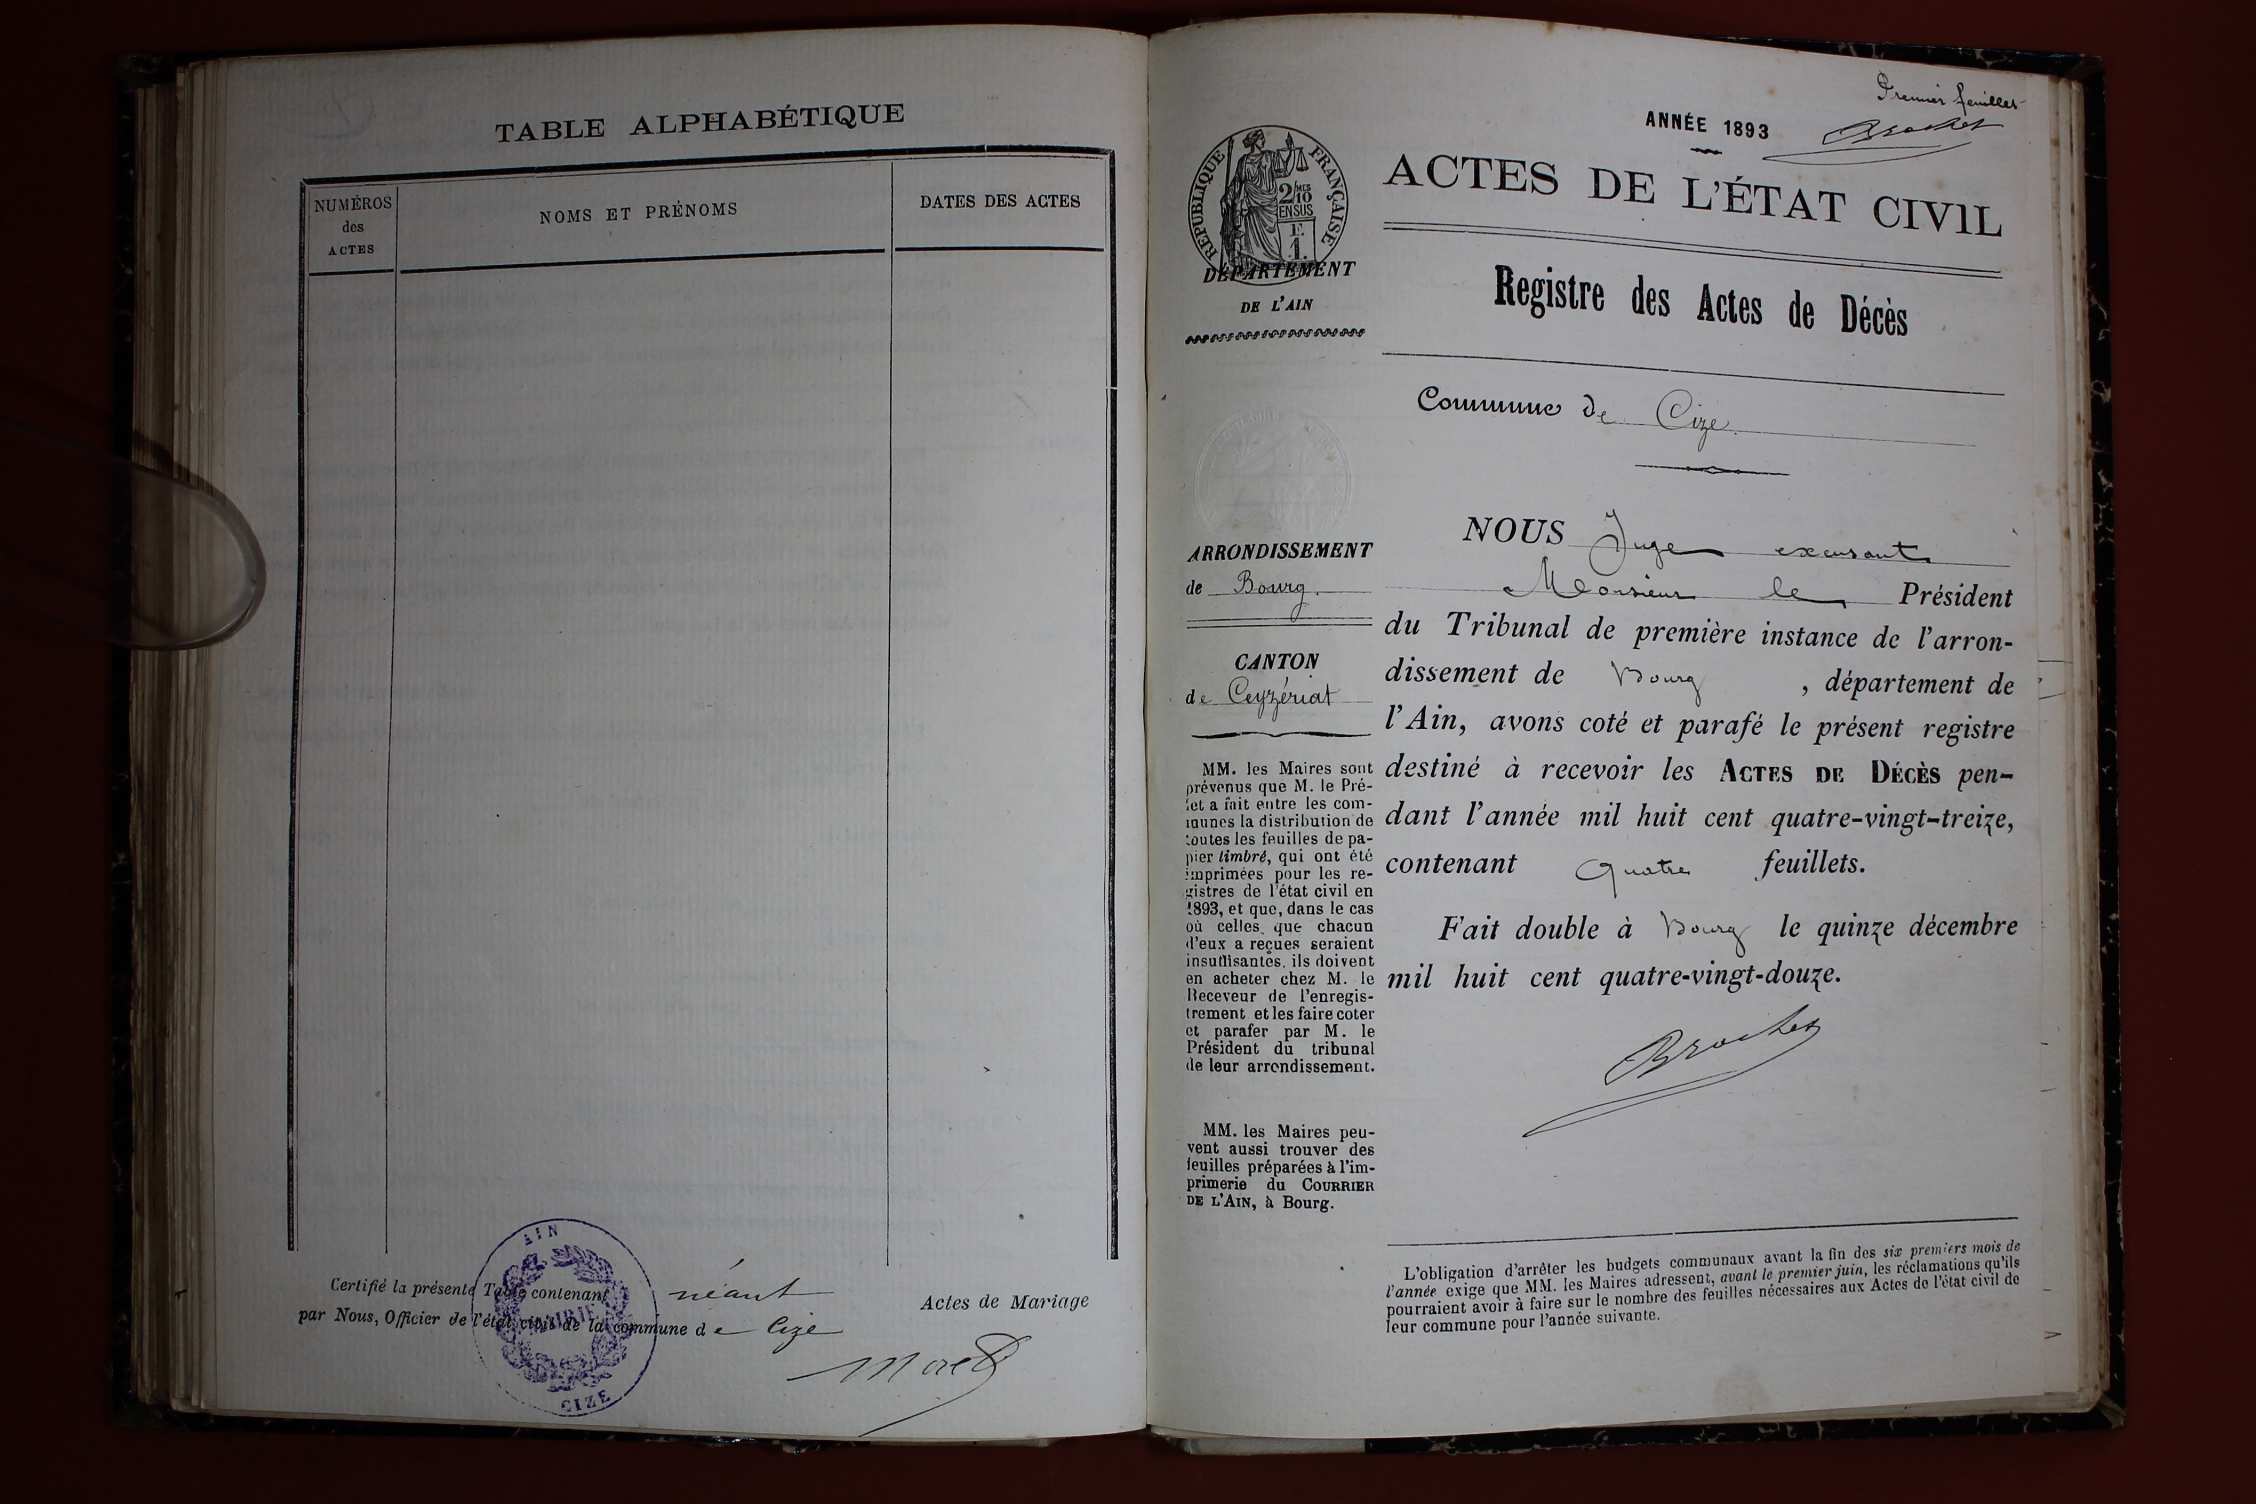 TABLE ALPHABÉTIQUE
NUMÉROS
des
ACTES
NOMS ET PRÉNOMS
DATES DES ACTES
Certifié la présente Table contenant néant Actes de Mariage
par Nous, Officier de l'état civil de la commune de Cize
AIN
MAIRIE
CIZE
Moret
Premier feuillet
Brochet
ANNÉE 1893
ACTES DE L'ÉTAT CIVIL
RÉPUBLIQUE FRANÇAISE
2/10 MES
EN SUS
F.
1.
DÉPARTEMENT
DE L'AIN
Registre des Actes de Décès
Commune de Cize
ARRONDISSEMENT
de Bourg.
CANTON
de Ceyzériat
MM. les Maires sont
prévenus que M. le Pré-
fet a fait entre les com-
munes la distribution de
toutes les feuilles de pa-
pier timbré, qui ont été
imprimées pour les re-
gistres de l'état civil en
1893, et que, dans le cas
où celles que chacun
d'eux a reçues seraient
insuffisantes, ils doivent
en acheter chez M. le
Receveur de l'enregis-
trement et les faire coter
et parafer par M. le
Président du tribunal
de leur arrondissement.
MM. les Maires peu-
vent aussi trouver des
feuilles préparées à l'im-
primerie du COURRIER
DE L'AIN, à Bourg.
NOUS Juge excusant
Monsieur le Président
du Tribunal de première instance de l'arron-
dissement de Bourg , département de
l'Ain, avons coté et parafé le présent registre
destiné à recevoir les ACTES DE DÉCÈS pen-
dant l'année mil huit cent quatre-vingt-treize,
contenant quatre feuillets.
Fait double à Bourg le quinze décembre
mil huit cent quatre-vingt-douze.
Brochet
L'obligation d'arrêter les budgets communaux avant la fin des six premiers mois de
l'année exige que MM. les Maires adressent, avant le premier juin, les réclamations qu'ils
pourraient avoir à faire sur le nombre des feuilles nécessaires aux Actes de l'état civil de
leur commune pour l'année suivante.